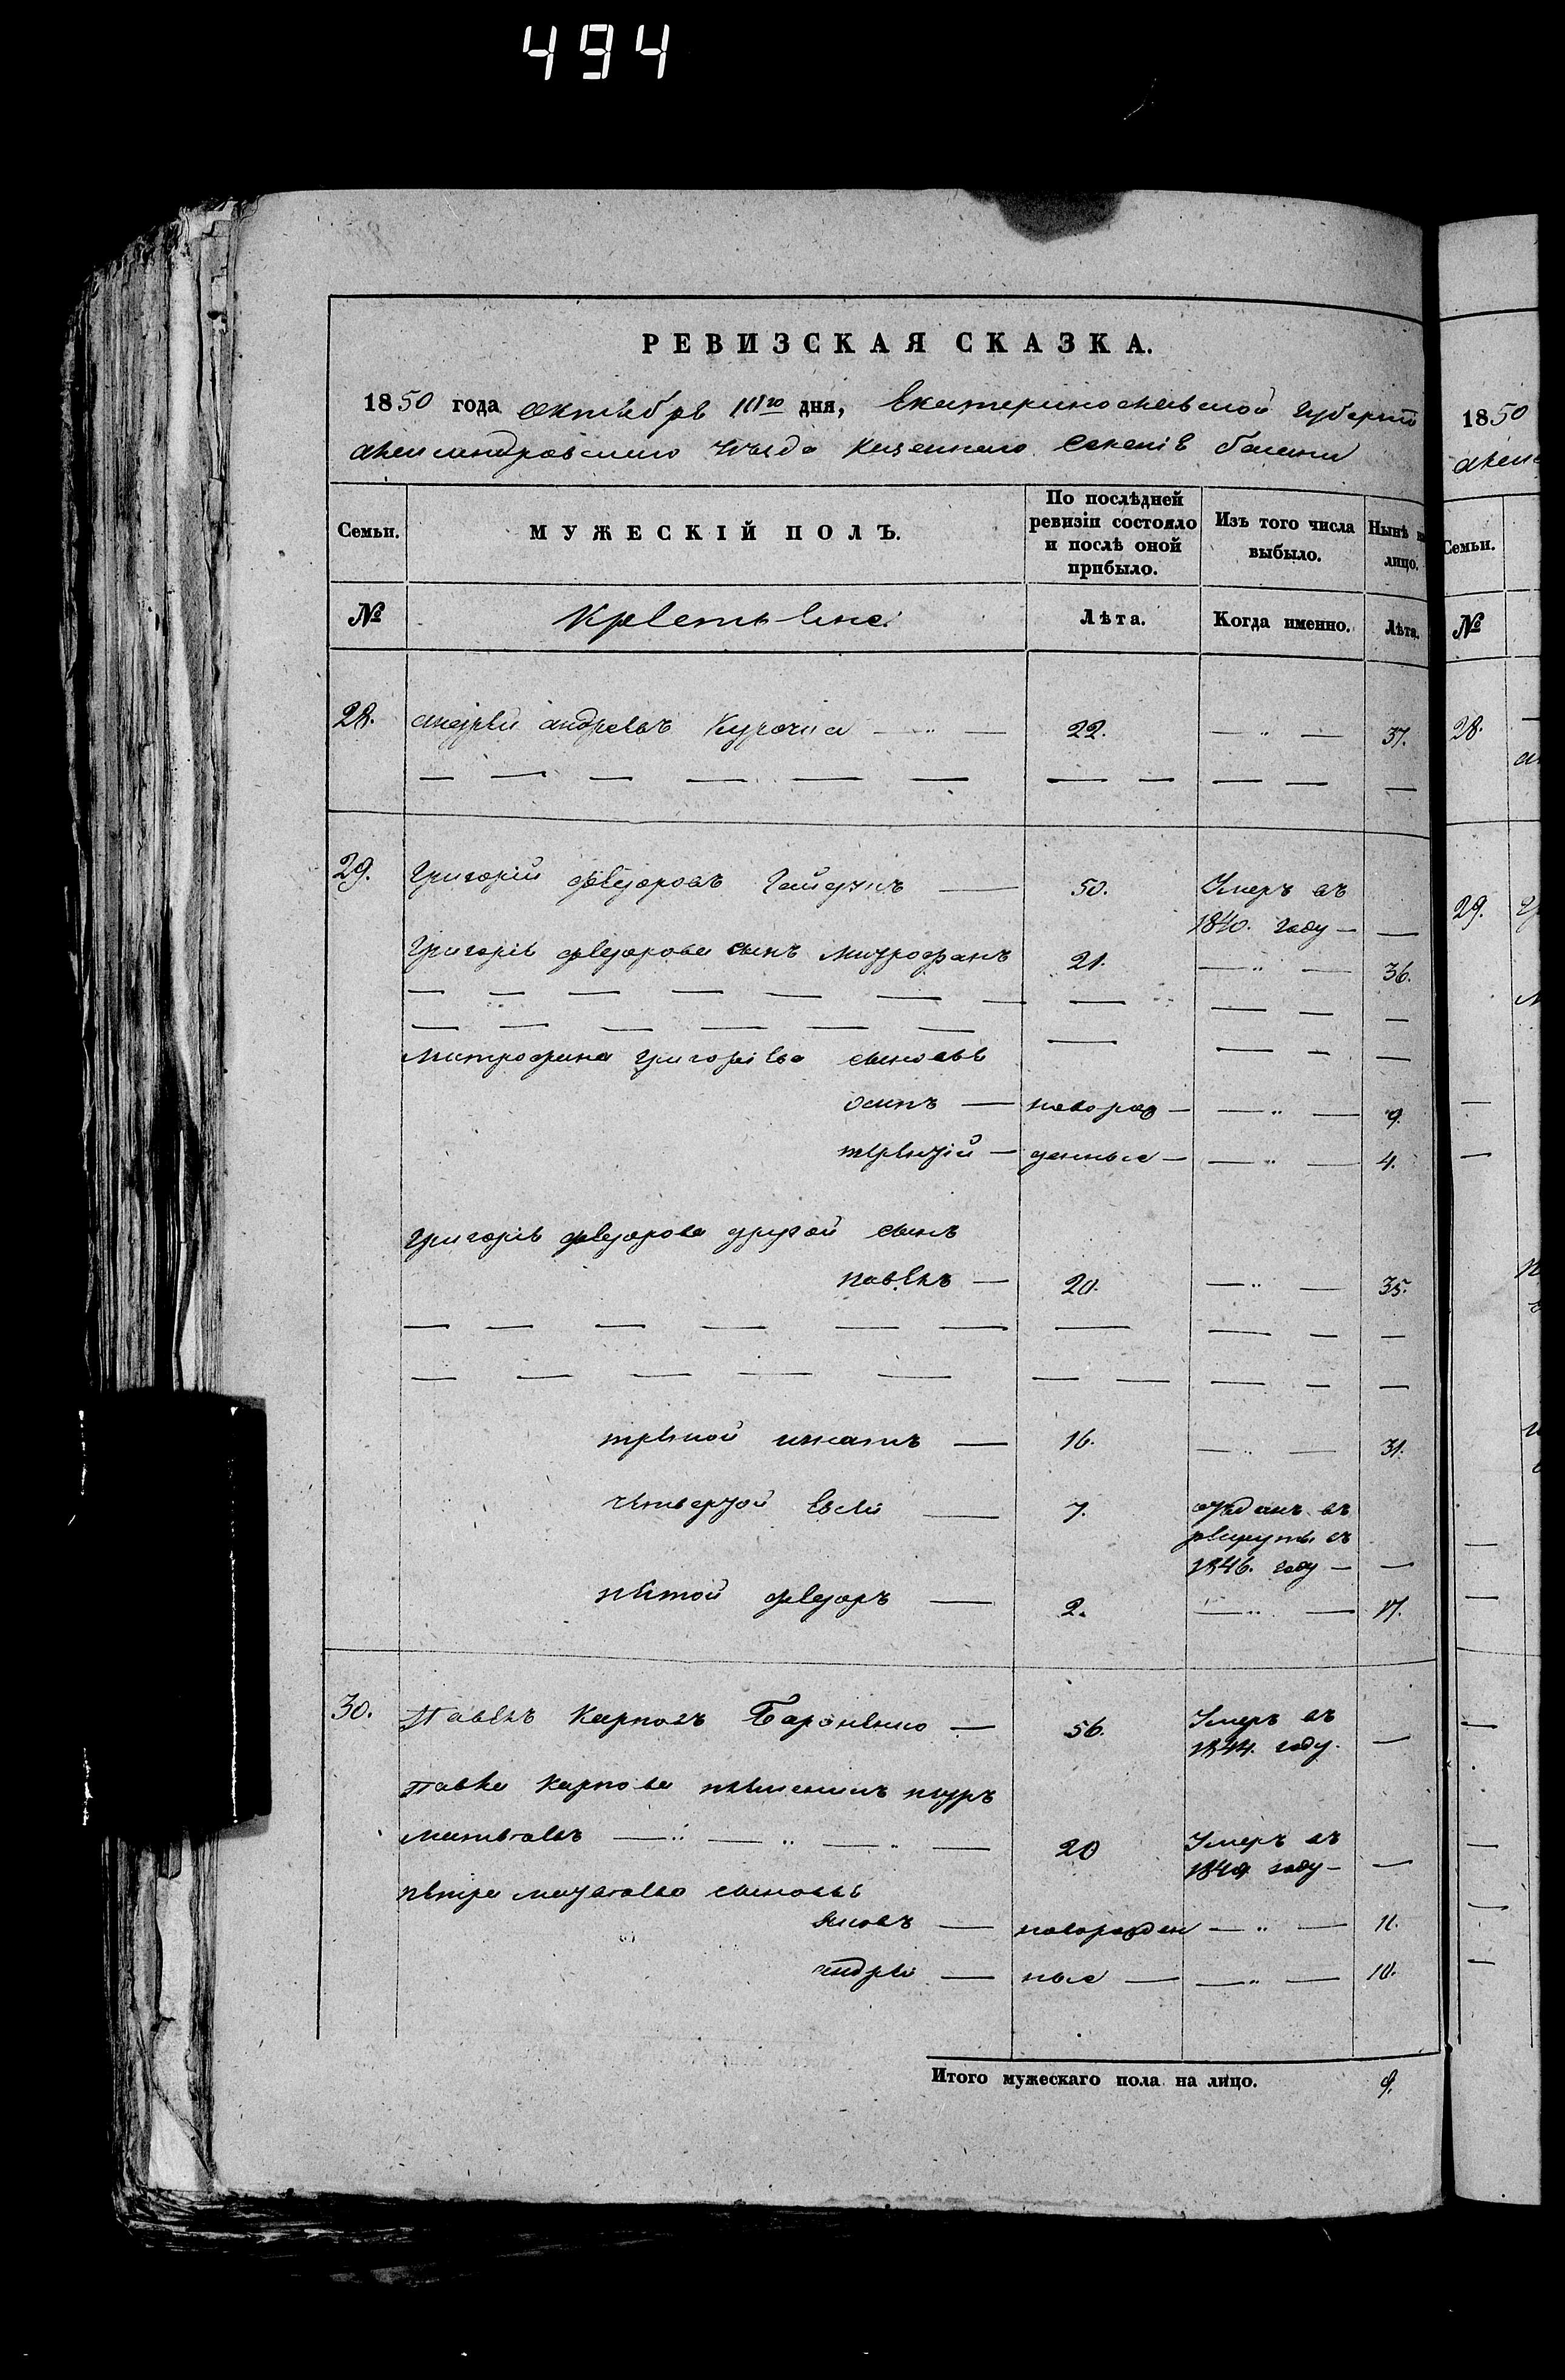 494
РЕВИЗСКАЯ СКАЗКА.
1850 года октября дня, Екатеринославской губернiи
александровскаго уѣзда казеннаго селенiя
Семьи. МУЖЕСКІЙ ПОЛЪ. По послѣдней ревизіи состояло и послѣ оной прибыло. Изъ того числа выбыло. Нынѣ на лицо.
№ Крестьяне Лѣта. Когда именно. Лѣта.
28. андрей андреевъ Курочка 22. 37.
29. Григорій федоровъ Гайдукъ 50. Умеръ въ
1840. году
Григорія федорова сынъ митрофанъ 21. 36.
митрофана григорiева сыновья
осипъ новорож 9.
терентій денные 4.
григорія федорова другой сынъ
павелъ 20. 35.
третой игнатъ 16. 31.
четвертой Евсей 7. отданъ въ
рекруты въ
1846. году
пятой федоръ 2. 17.
30. Павелъ Карповъ 56. Умеръ въ
1844. году.
павла Карпова племяникъ петръ
матвѣевъ 20 Умеръ въ
1849 году
петра матвѣева сыновья
яковъ новорожден 11.
андрей ные 10.
Итого мужескаго пола на лицо. 9.
1850
Семьи.
№
28.
29.